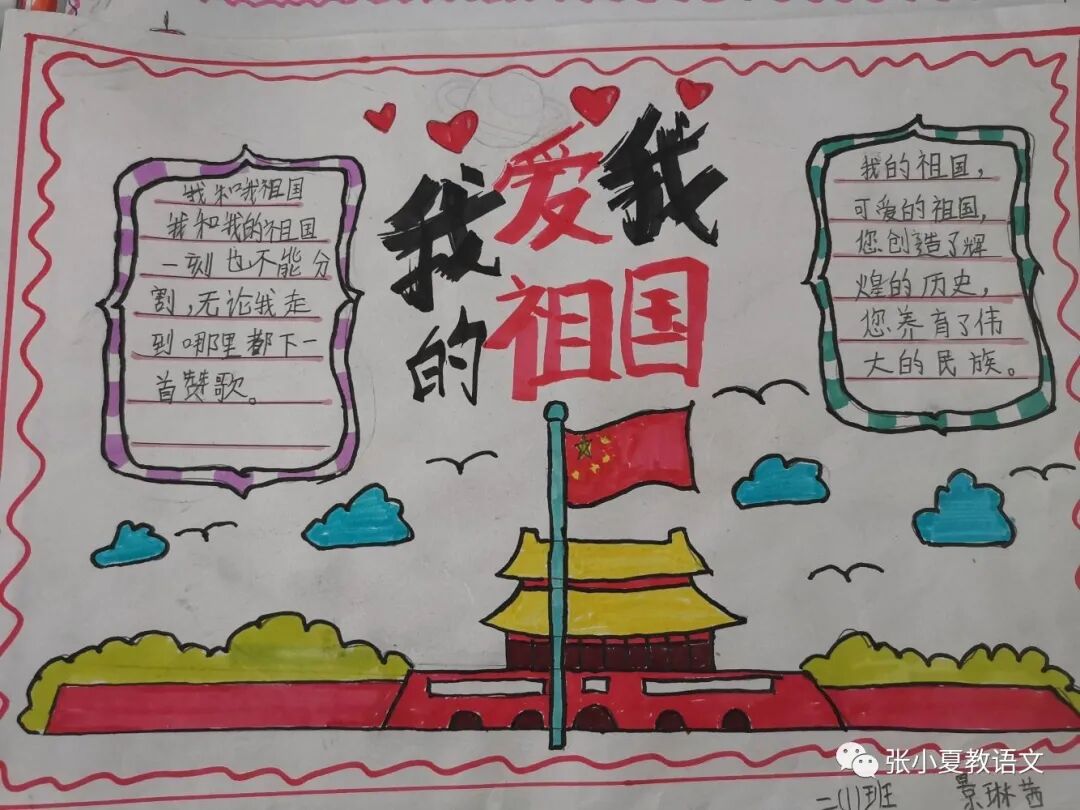 我爱我
的祖国
我和我祖国
我和我的祖国
一刻也不能分
割,无论我走
到哪里都下一
首赞歌。
我的祖国,
可爱的祖国,
您创造了辉
煌的历史,
您养育了伟
大的民族。
张小夏教语文
二(1)班 景琳茜